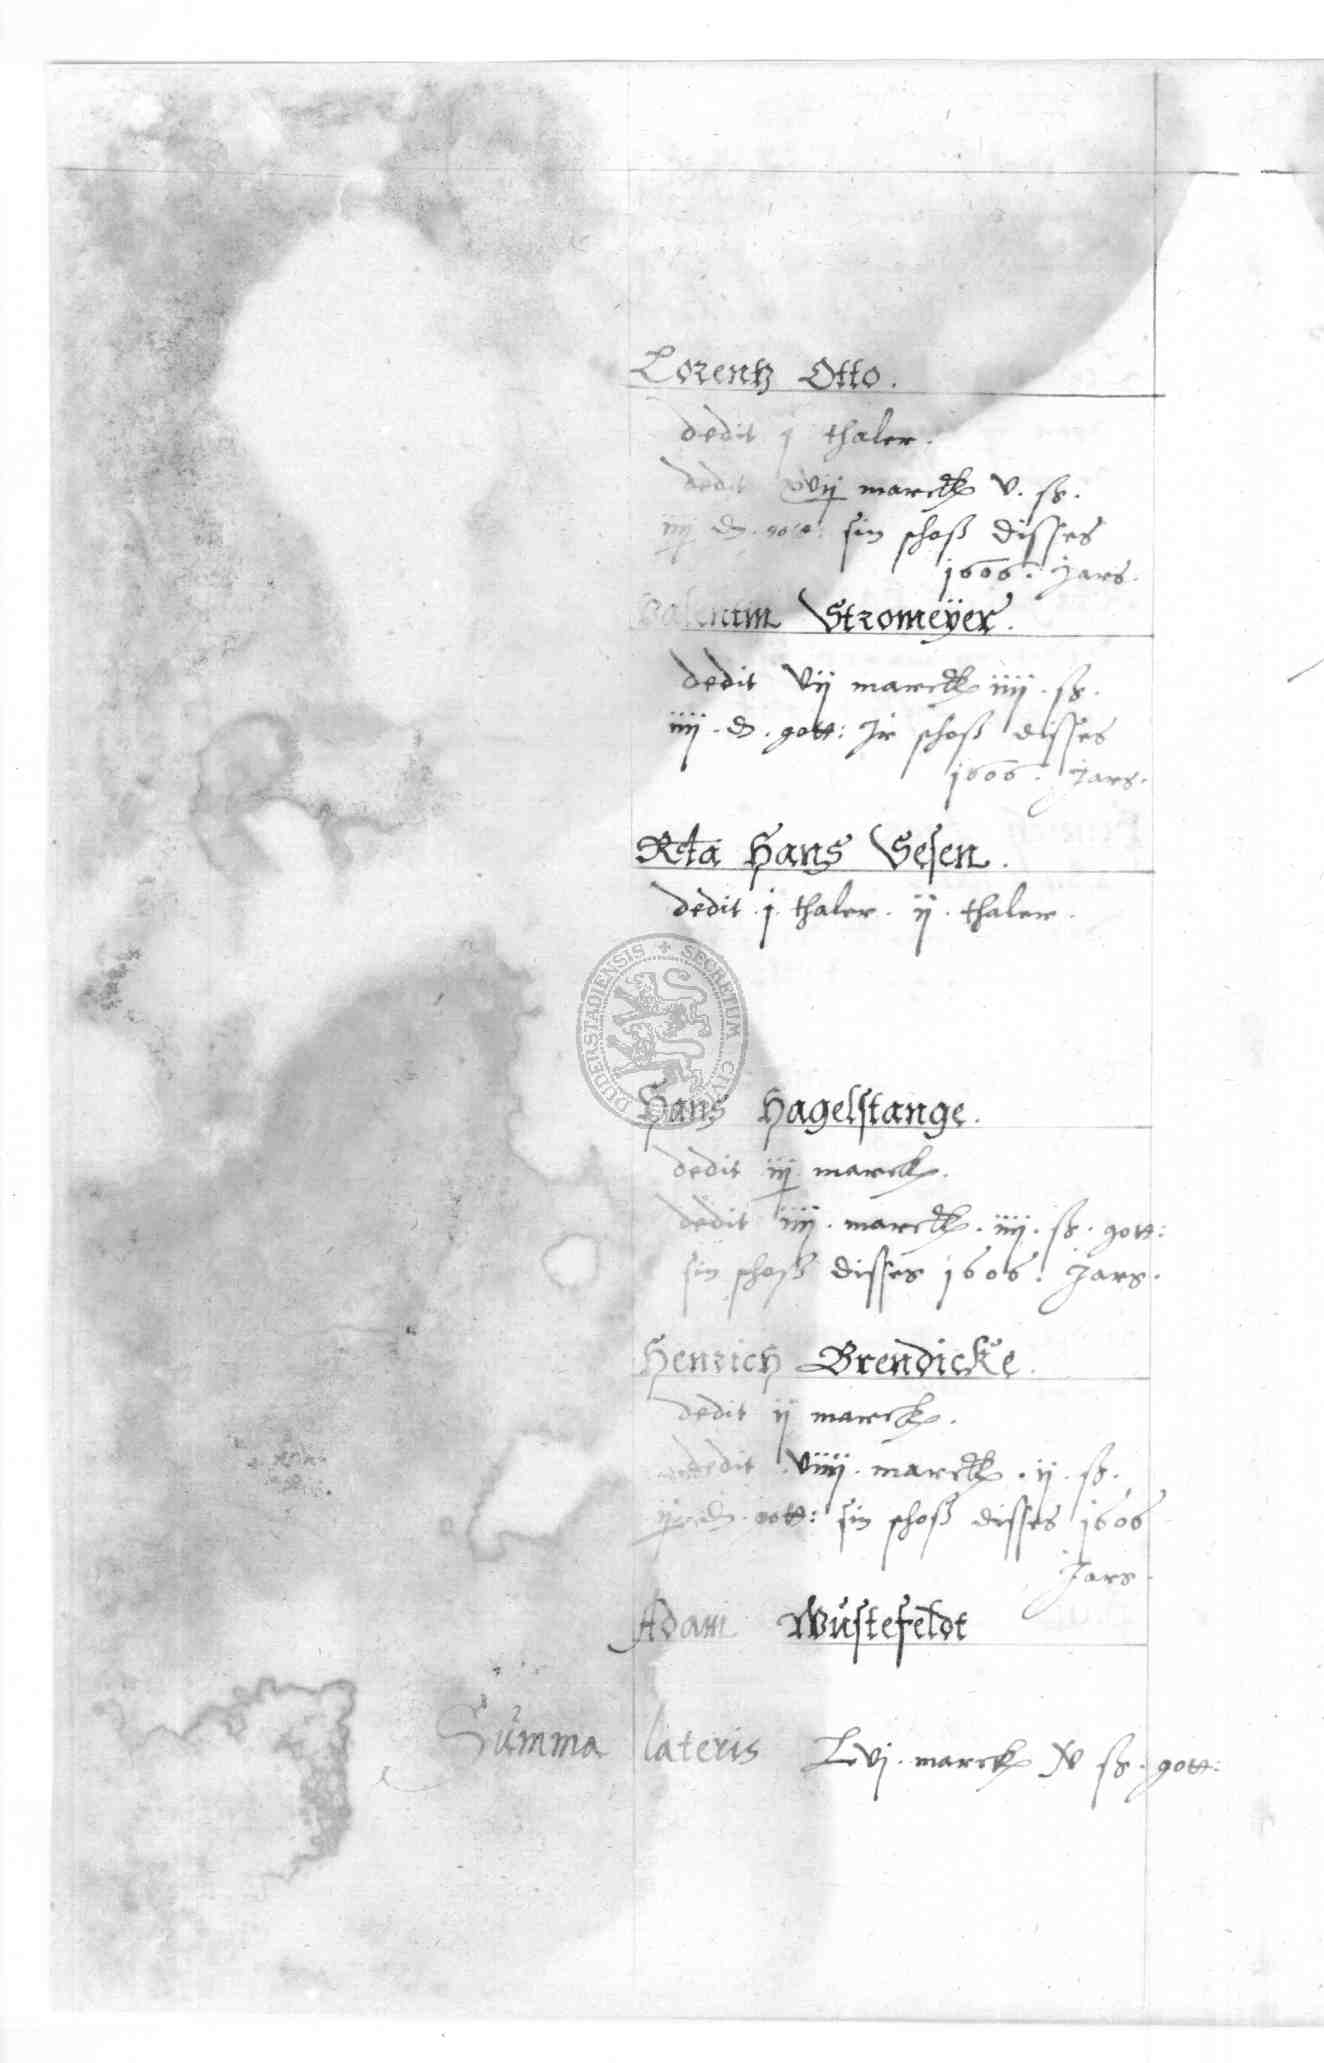 Lorentz Otto.
dedit j thaler.
dedit xvij marck v. ß.
iiij d. gott: sin schoß disses
1606. Jars.
Valentin Stromeÿer.
dedit vij marck iiij. ß.
iiij. d. gott: Jr schoß disses
1606. Jars.
Rta Hans Sesen.
dedit. j. thaler. ij. thaler.
DUDERSTADIENSIS + SECRETUM CIVI
Hans Hagelstange.
dedit iij marck.
dedit iiij. marck. iiij. ß. gott:
sin schoß disses 1606. Jars.
Henrich Brendicke.
dedit ij marck.
dedit. viiij. marck. ij. ß.
d. gott: sin schoß disses 1606
Jars.
Adam Wüstefeldt
Summa lateris Lvj. marck xv ß. gott: